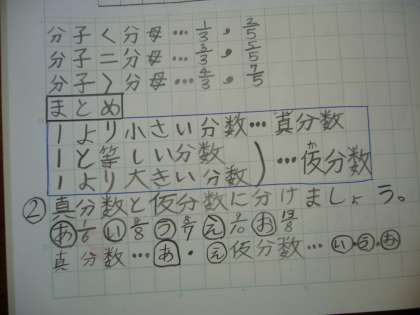 分子＜分母…1/3，2/5
分子＝分母…3/3，5/5
分子＞分母…4/3，7/5
まとめ
1より小さい分数…真分数
1と等しい分数
1より大きい分数)…仮分数
か
②真分数と仮分数に分けましょう。
あ/6 い8/8 う8/7 え/10 お13/8
真分数…あ・え仮分数…い・う・お